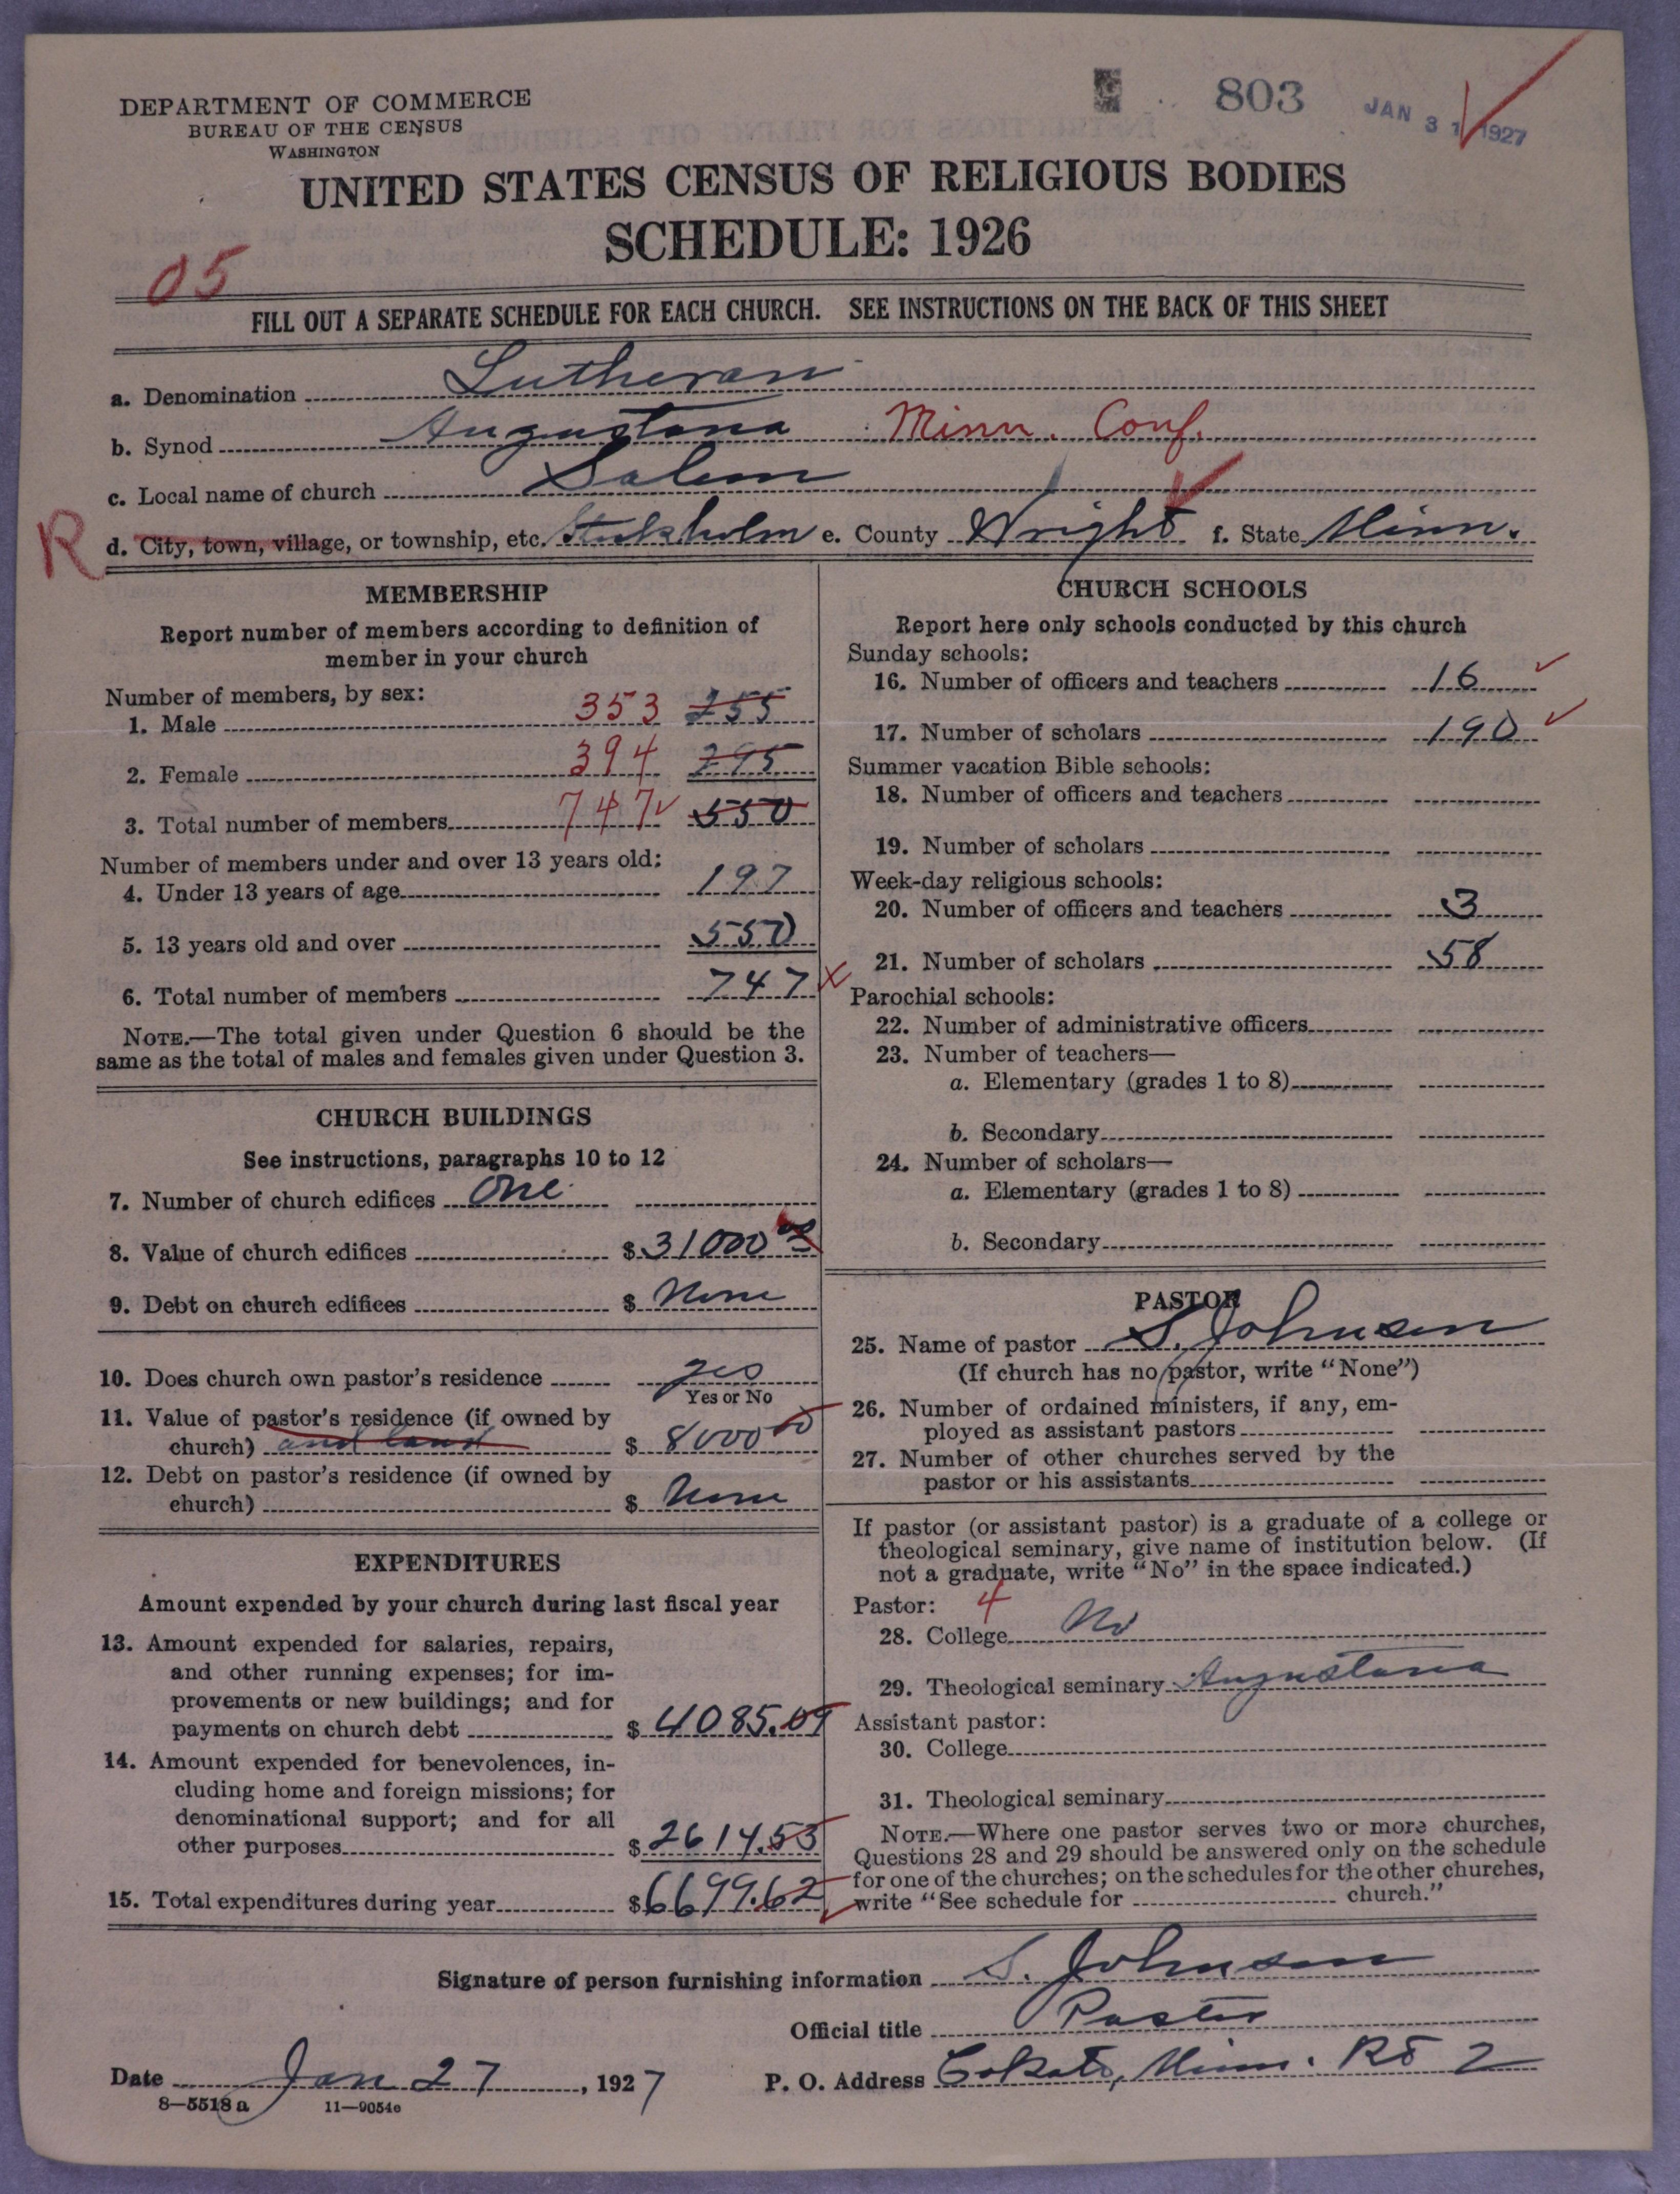 DEPARTMENT OF COMMERCE
BUREAU OF THE CENSUS
WASHINGTON
803
JAN 31 1927
UNITED STATES CENSUS OF RELIGIOUS BODIES
SCHEDULE: 1926
05
FILL OUT A SEPARATE SCHEDULE FOR EACH CHURCH. SEE INSTRUCTIONS ON THE BACK OF THIS SHEET
a. Denomination Lutheran
b. Synod Augustana Minn. Conf.
c. Local name of church Salem
R d. City, town, village, or township, etc. Stokholm e. County Wright f. State Minn.
MEMBERSHIP
Report number of members according to definition of
member in your church
Number of members, by sex:
1. Male 353 255
2. Female 394 295
3. Total number of members 747 550
Number of members under and over 13 years old:
4. Under 13 years of age 197
5. 13 years old and over 550
6. Total number of members 747
NOTE.—The total given under Question 6 should be the
same as the total of males and females given under Question 3.
CHURCH BUILDINGS
See instructions, paragraphs 10 to 12
7. Number of church edifices One
8. Value of church edifices $ 31000 00
9. Debt on church edifices $ None
10. Does church own pastor's residence yes
Yes or No
11. Value of pastor's residence (if owned by
church) and land $ 8000 00
12. Debt on pastor's residence (if owned by
church) $ None
EXPENDITURES
Amount expended by your church during last fiscal year
13. Amount expended for salaries, repairs,
and other running expenses; for im-
provements or new buildings; and for
payments on church debt $ 4085.09
14. Amount expended for benevolences, in-
cluding home and foreign missions; for
denominational support; and for all
other purposes $ 2614.53
15. Total expenditures during year $ 6699.62
CHURCH SCHOOLS
Report here only schools conducted by this church
Sunday schools:
16. Number of officers and teachers 16
17. Number of scholars 190
Summer vacation Bible schools:
18. Number of officers and teachers
19. Number of scholars
Week-day religious schools:
20. Number of officers and teachers 3
21. Number of scholars 58
Parochial schools:
22. Number of administrative officers
23. Number of teachers—
a. Elementary (grades 1 to 8)
b. Secondary
24. Number of scholars—
a. Elementary (grades 1 to 8)
b. Secondary
PASTOR
25. Name of pastor S. Johnson
(If church has no pastor, write "None")
26. Number of ordained ministers, if any, em-
ployed as assistant pastors
27. Number of other churches served by the
pastor or his assistants
If pastor (or assistant pastor) is a graduate of a college or
theological seminary, give name of institution below. (If
not a graduate, write "No" in the space indicated.)
Pastor: 4
28. College No
29. Theological seminary Augustana
Assistant pastor:
30. College
31. Theological seminary
NOTE.—Where one pastor serves two or more churches,
Questions 28 and 29 should be answered only on the schedule
for one of the churches; on the schedules for the other churches,
write "See schedule for church."
Signature of person furnishing information S. Johnson
Official title Pastor
Date Jan 27, 1927 P. O. Address Cokato, Minn. Rt 2
8—5518a 11—9054e